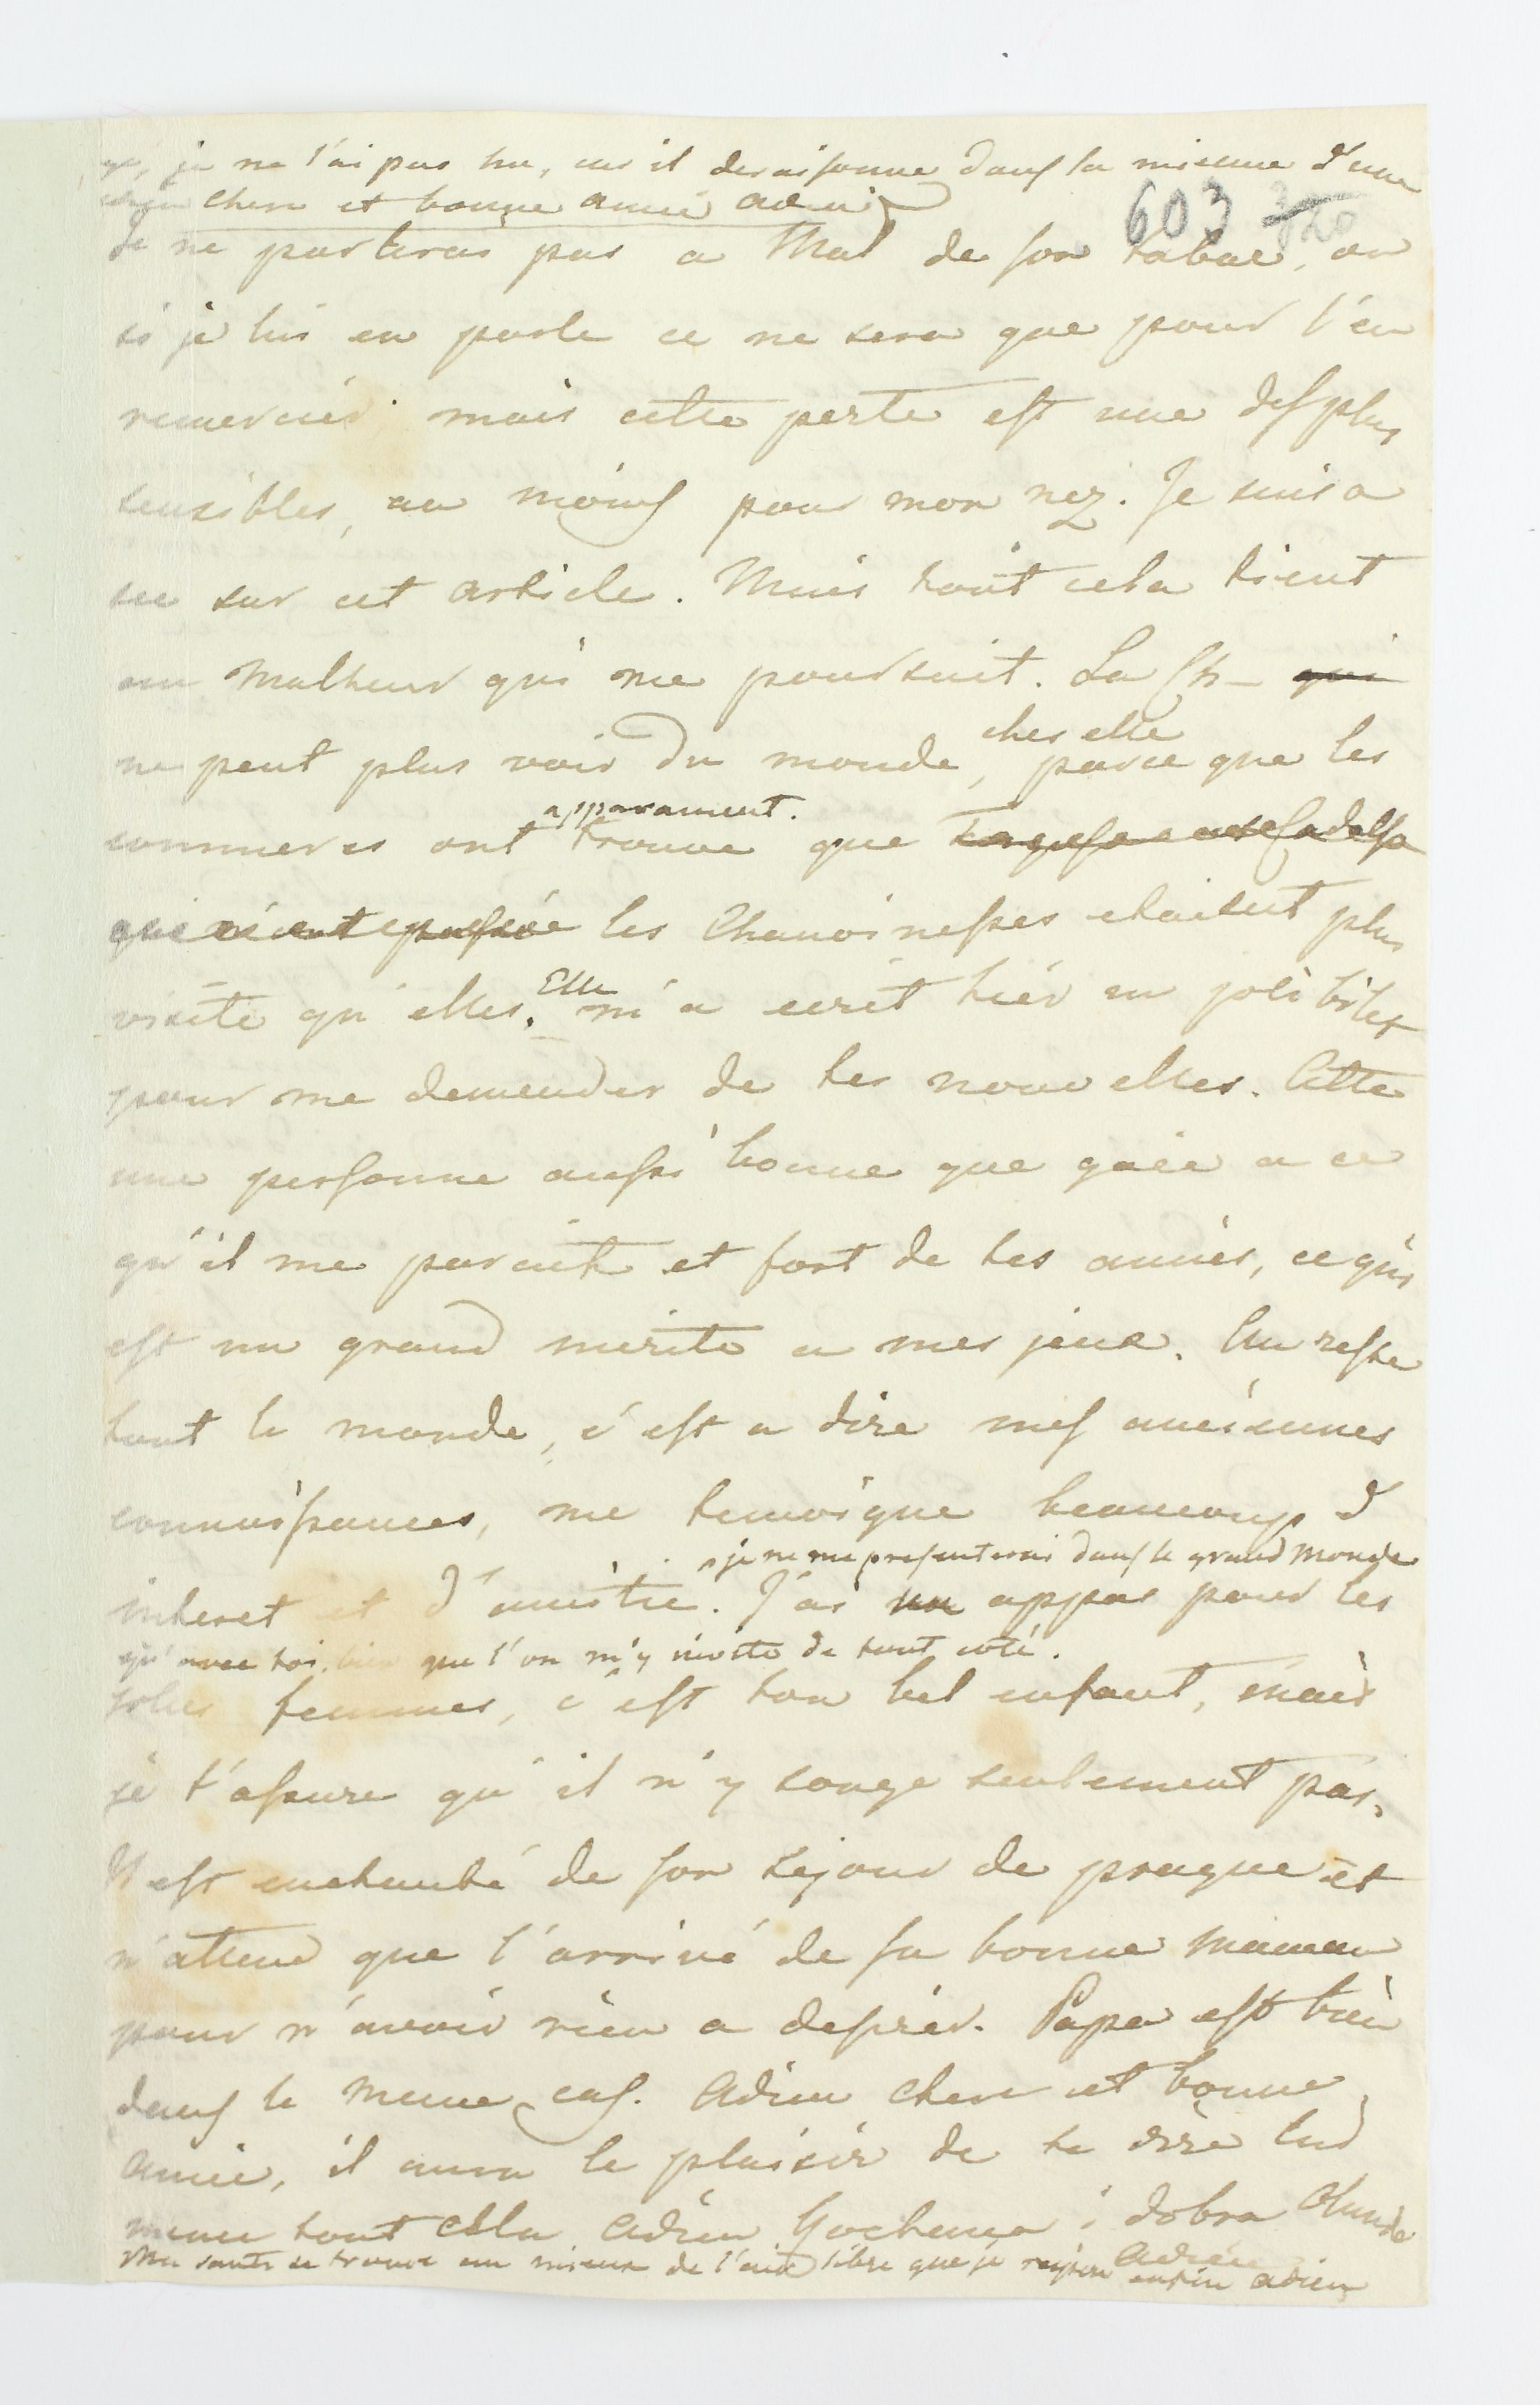 je ne l'ai pas lu, car il deraisonne dans la mienne d'une
chere et bonne amie adieu
603 320
Je ne parlerai pas a Mat de son tabac, ou
si je lui en parle ce ne sera que pour l'en
remercier mais cette perte est une des plus
sensibles, au moins pour mon nez. Je suis a
sec sur cet article. Mais tout cela tient
au malheur qui me poursuit. La Sch- qui
ne peut plus voir du monde, chez elle parce que les
commeres ont apparament. trouve que
que les Chanoinesses etaient plus
visite qu'elles. Elle m'a ecrit hier un joli bilet
pour me demender de tes nouvelles. C'itte
une personne aussi bonne que gaie a ce
qu'il me parait et fort de tes amies, ce qui
est un grand merite a mes jeux. Au reste
tout le monde, c'est a dire mes anciennes
connoissances, me temoigne beaucoup d
interet et d'amitié. je ne me presenterai dans le grand monde
qu'avec toi, bien que l'on m'y invite de tout coté.
J'ai un appas pour les
jolies femmes, c'est ton bel enfant, mais
je t'assure qu'il n'y songe seulement pas.
Il est enchanté de son sejour de prague et
n'attend que l'arrivé de sa bonne maman
pour n'avoir rien a desirer. Papa est bien
dans le meme cas. Adieu chere et bonne
amie, il aura le plaisir de te dire lui
meme tout cela adieu Kochanya i dobra
Ma santé se trouve au mieux de l'air libre que je respire enfin adieu
Adieu